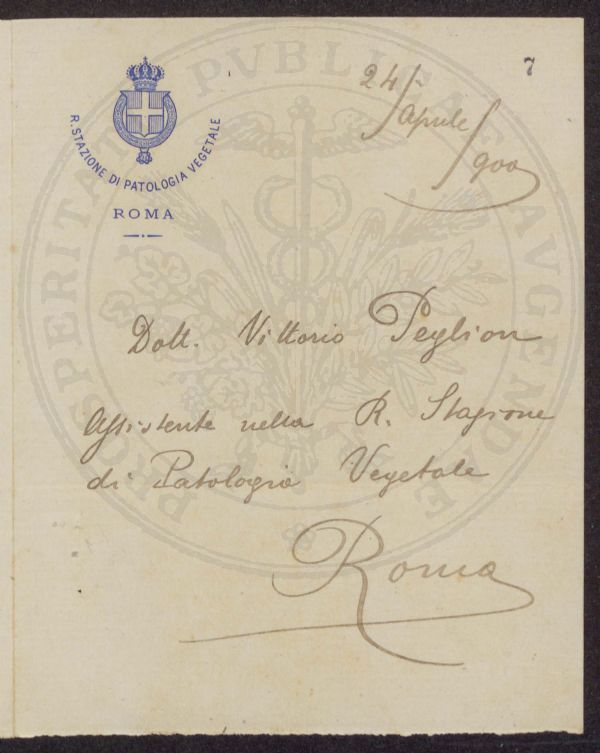 7
24/Aprile/900
R. STAZIONE DI PATOLOGIA VEGETALE
ROMA
Dott. Vittorio Peglion
Assistente nella R. Stazione
di Patologia Vegetale
Roma
PROSPERITATI PVBLICAE AVGENDAE